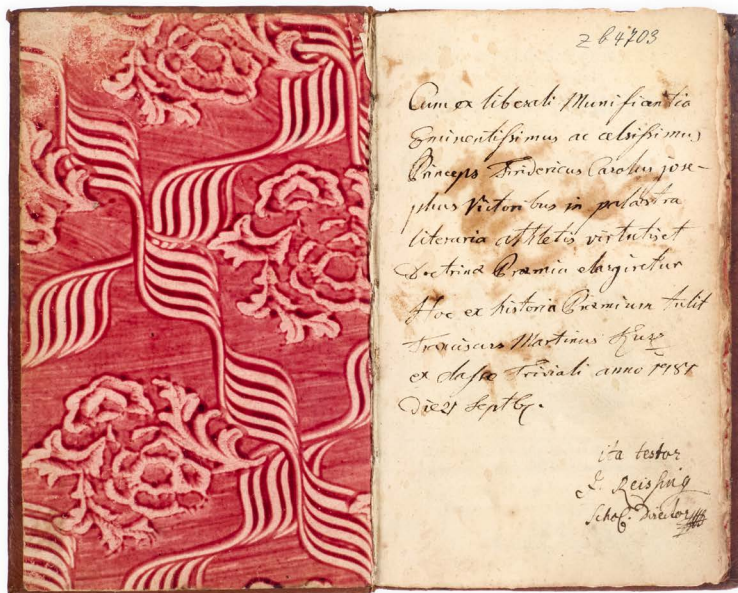 z b 4703
Cum ex liberali Munificentia
Eminentissimus ac celsissimus
Princeps Fridericus Carolus jose-
phus Victoribus in palæstra
literaria athletis virtutis et
Doctrinæ Præmia elargiretur
Hoc ex historia Præmium tulit
Franciscus Martinus
ex classe Triviali anno 1781
Die 21 Septbr.
ita testor
J. Reissing
Schol. Director